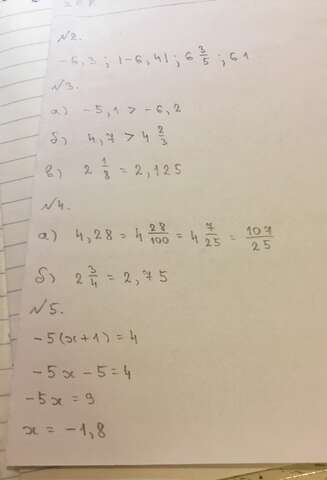 №2.
-6,3 ; |-6,4| ; 6 3/5 ; 61
№3.
а) -5,1 > -6,2
б) 4,7 > 4 2/3
в) 2 1/8 = 2,125
№4.
а) 4,28 = 4 28/100 = 4 7/25 = 107/25
б) 2 3/4 = 2,75
№5.
-5(x+1) = 4
-5x - 5 = 4
-5x = 9
x = -1,8